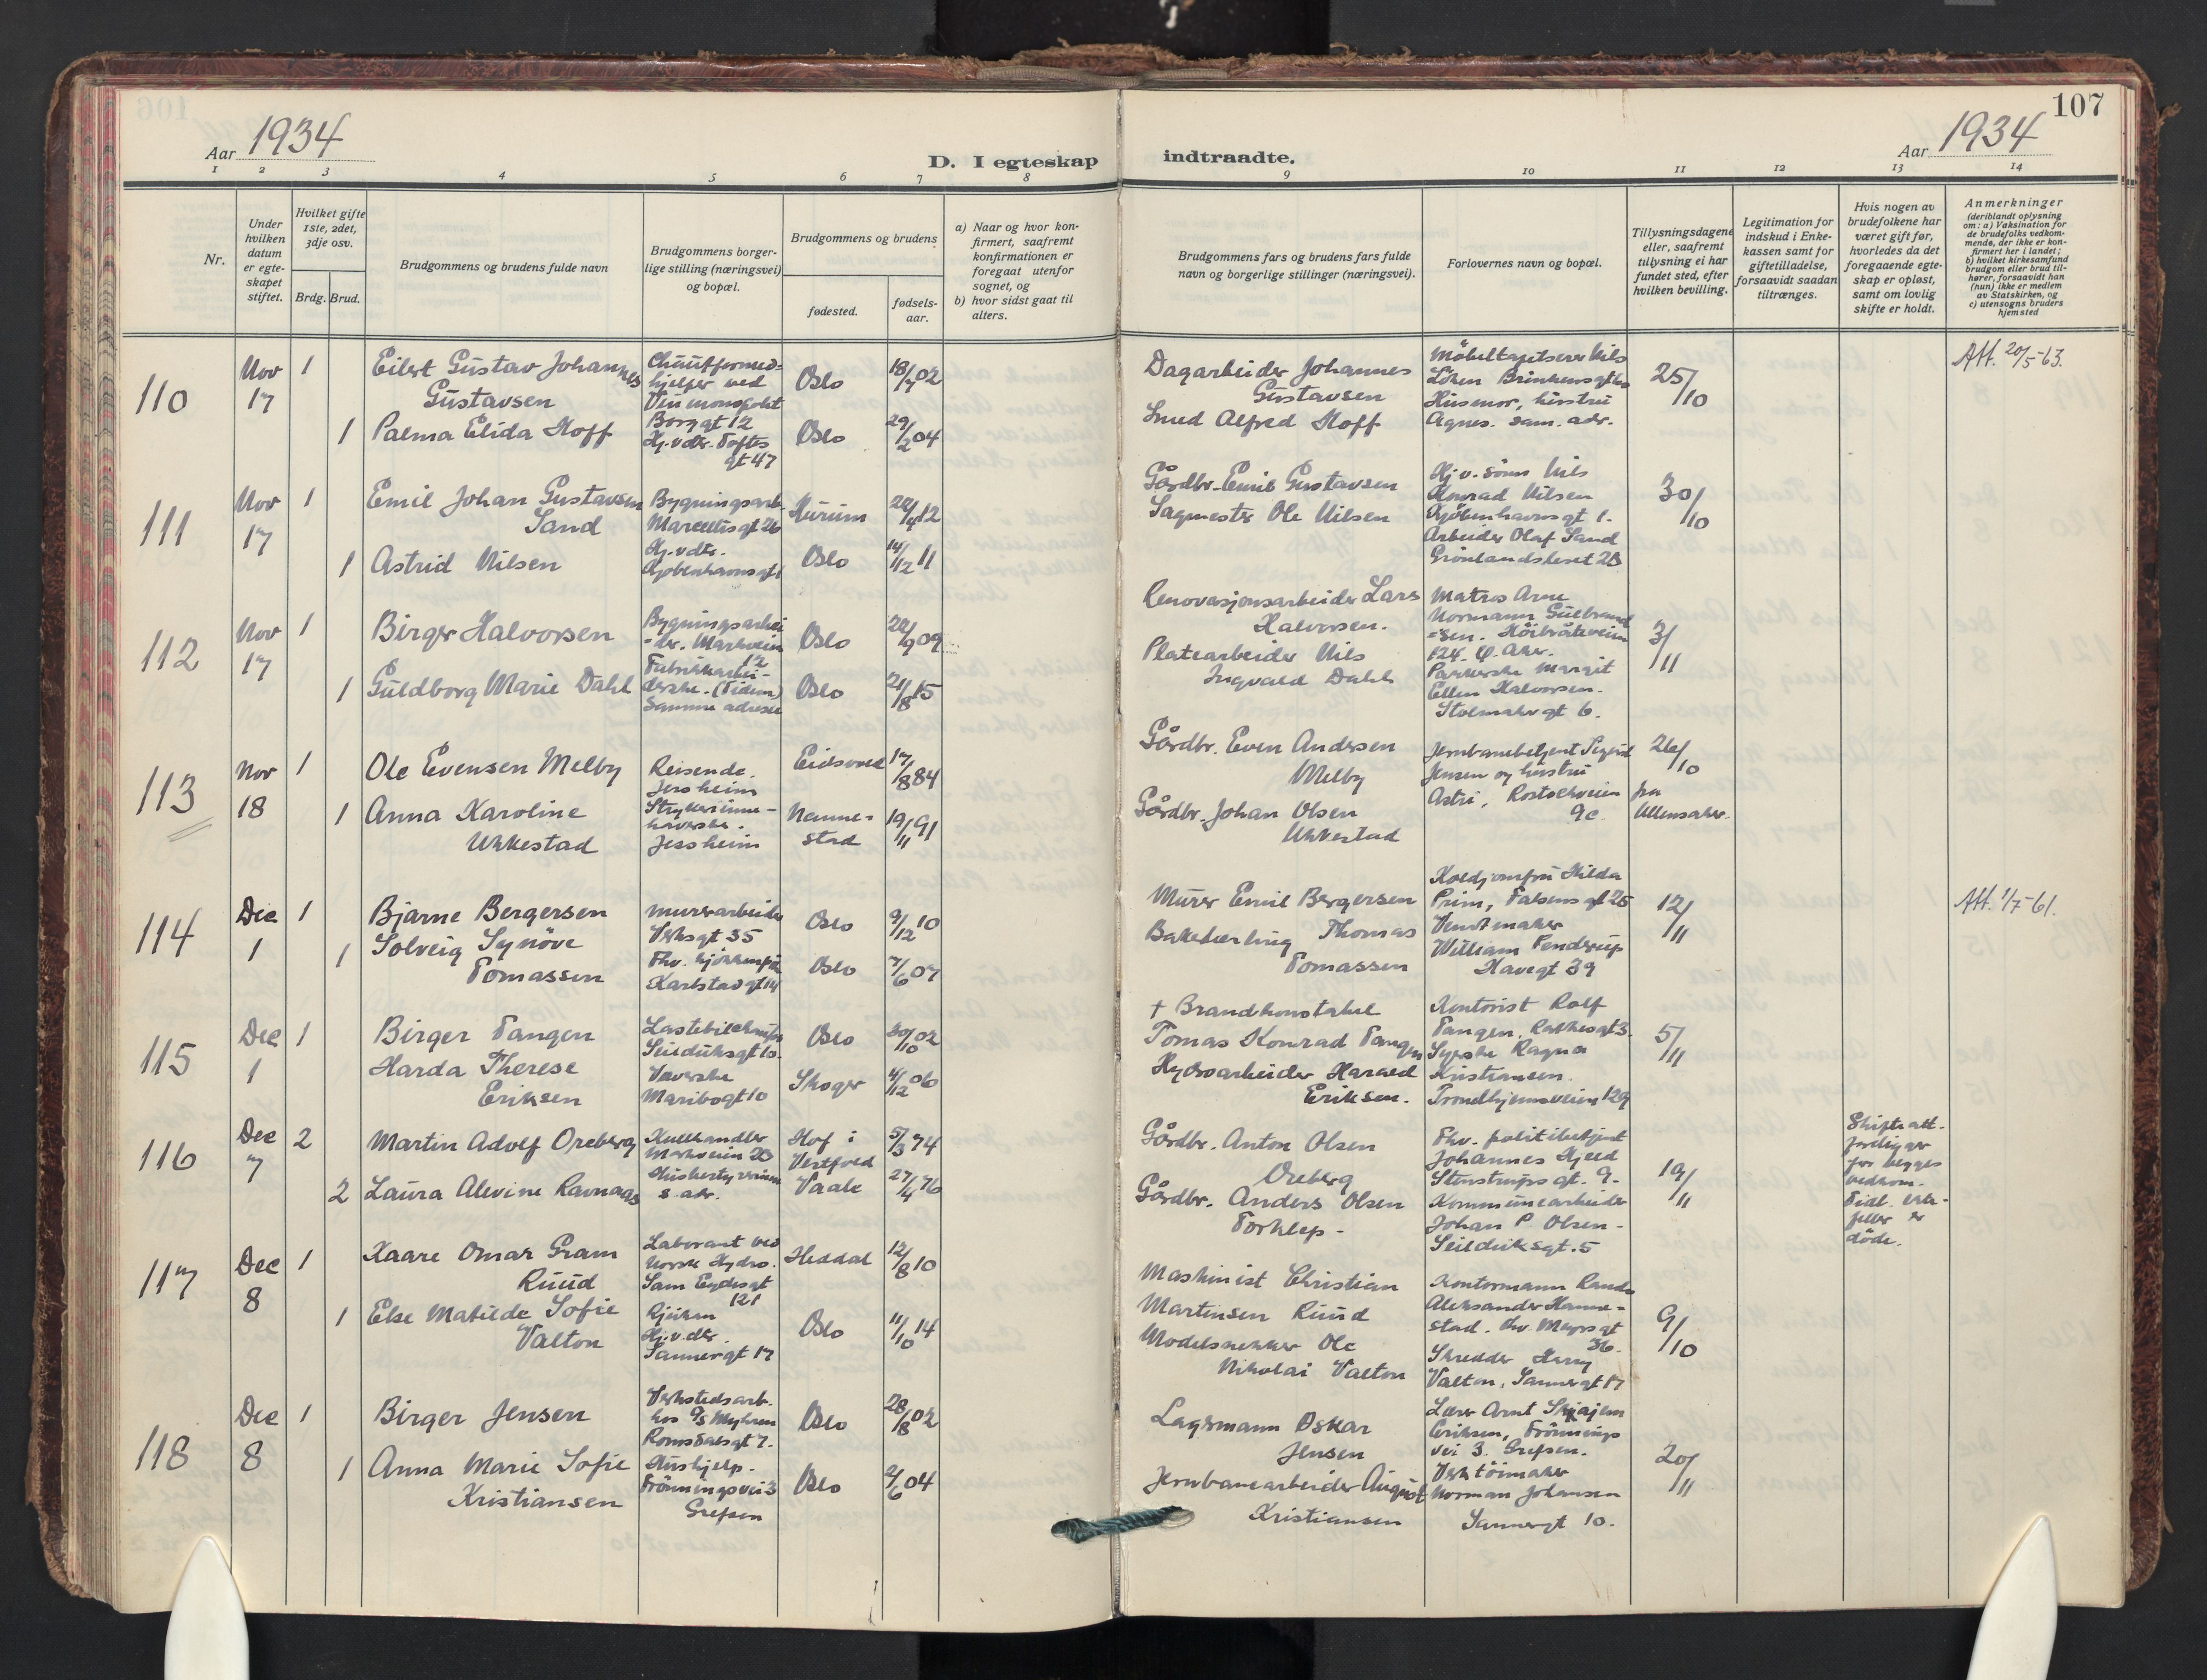 107
Aar 1934
D. I egteskap indtraadte.
Aar 1934
1 2 3 4 5 6 7 8 9 10 11 12 13 14
Nr.
Under hvilken datum er egteskapet stiftet.
Hvilket gifte 1ste, 2det, 3dje osv.
Brdg. Brud.
Brudgommens og brudens fulde navn
Brudgommens borgerlige stilling (næringsvei) og bopæl.
Brudgommens og brudens
fødested.
fødselsaar.
a) Naar og hvor konfirmert, saafremt konfirmationen er foregaat utenfor sognet, og
b) hvor sidst gaat til alters.
Brudgommens fars og brudens fars fulde navn og borgerlige stillinger (næringsvei).
Forlovernes navn og bopæl.
Tillysningsdagene eller, saafremt tillysning ei har fundet sted, efter hvilken bevilling.
Legitimation for indskud i Enkekassen samt for giftetilladelse, forsaavidt saadan tiltrænges.
Hvis nogen av brudefolkene har været gift før, hvorledes da det foregaaende egteskap er opløst, samt om lovlig skifte er holdt.
Anmerkninger
(deriblandt oplysning om: a) Vaksination for de brudefolks vedkommende, der ikke er konfirmert her i landet; b) hvilket kirkesamfund brudgom eller brud tilhører, forsaavidt han (hun) ikke er medlem av Statskirken, og c) utensogns bruders hjemsted
110
Nov 17
1
Eilert Gustav Johannes
Gustavsen
Oslo
18/7 02
Dagarbeider Johannes
Gustavsen
Møbeltapetserer Nils
Løken
Husmor, hustru
Agnes. sam. adr.
25/10
Att. 20/5-63.
1
Palma Elida Hoff
Borggt 12
Hj.v.dtr. Toftes
gt 47
Oslo
29/2 04
Smed Alfred Hoff
111
Nov 17
1
Emil Johan Gustavsen
Sand
Bygningsarb.
Hurum
22/4 12
Gårdbr. Emil Gustavsen
Hj.v. sønn Nils
Konrad Nilsen
Kjøbenhavnsgt 1.
Arbeider Olaf Sand
Grønlandsleret 28
30/10
1
Astrid Nilsen
Hj.v.dtr.
Kjøbenhavnsgt 1
Oslo
14/12 11
Sagmester Ole Nilsen
112
Nov 17
1
Birger Halvorsen
Bygningsarbei
-der. Markveien
12
Oslo
22/9 09
Renovasjonsarbeider Lars
Halvorsen.
Matros Arne
Normann Gulbrand
-sen. Høibråtenveien
124. Ø. Aker.
Margit
Ellen Halvorsen.
Stolmakergt 6.
3/11
1
Guldborg Marie Dahl
Fabrikkarbei-
derske. (Tidem)
Samme adresse
Oslo
21/8 15
Platearbeider Nils
Ingvald Dahl
113
Nov 18
1
Ole Evensen Melby
Reisende.
Jessheim
Eidsvold
17/8 84
Gårdbr. Even Andersen
Melby
Jernbanebetjent Sigurd
Jensen og hustru
Astri, Rostockveien
9c.
26/10
fra
Ullensaker.
1
Anna Karoline
Ukkestad
Strykeriinne-
haverske.
Jessheim
Nanne-
stad
19/11 91
Gårdbr. Johan Olsen
Ukkestad
114
Dec 1
1
Bjarne Bergersen
Murerarbeider
Verksgt 35
Oslo
9/12 10
Murer Emil Bergersen
Koldjomfru Hilda
Prim, Falsensgt 25
William Penderup
Havegt 39
12/11
Att. 1/7-61.
1
Solveig Synøve
Tomassen
Fhv. kjøkkenpike
Karlstadgt 14
Oslo
7/6 07
Bakelærling Thomas
Tomassen
115
Dec 1
1
Birger Tangen
Seilduksgt 10.
Oslo
30/10 02
† Brandkonstabel
Tomas Konrad Tangen
Kontorist Rolf
Tangen. Rathkesgt 3.
Syerske Ragna
Kristiansen.
Trondhjemsveien 129
5/11
Harda Therese
Eriksen
Væverske
Maribogt 10
Skoger
4/12 06
Hydroarbeider Harald
Eriksen.
116
Dec 7
2
Martin Adolf Oreberg
Kulhandler
Markveien 28
Hof i
Vestfold
5/3 74
Gårdbr. Anton Olsen
Oreberg
Fhv. politibetjent
Johannes Kjeld
Stenstrupsgt. 9.
Kommunearbeider
Johan P. Olsen -
Seilduksgt. 5
19/11
Skifteatt.
foreligger
for begges
vedkom.
Tidl. ekte-
feller er
døde.
2
Laura Alevine Ravnaas
Husbestyrerinne
s. adr.
Vaale
27/4 76
Gårdbr. Anders Olsen
Torklep -
117
Dec 8
1
Kaare Omar Gram
Ruud
Laborant ved
Norsk Hydro.
Sam Eydesgt
121
Rjukan
Heddal
12/8 10
Maskinist Christian
Martinsen Ruud
Kontormann
Aleksander Hanne-
stad. Thv. Meyersgt
36.
Skredder Harry
Valton, Sannergt 17
9/10
1
Else Matilde Sofie
Valton
Hj.v.dtr.
Sannergt 17
Oslo
11/10 14
Modelsnekker Ole
Nikolai Valton
118
Dec 8
1
Birger Jensen
Verkstedsarb.
hos A/S Myhren
Romsdalsgt 7.
Oslo
28/8 02
Lagermann Oskar
Jensen
Lærer Arnt Skjajem
Eriksen, Frønnings
vei 3. Grefsen.
Verktøimaker
Norman Johansen
Sannergt 10.
20/11
1
Anna Marie Sofie
Kristiansen
Hushjelp.
Frønningsvei 3
Grefsen
Oslo
2/6 04
Jernbanearbeider August
Kristiansen